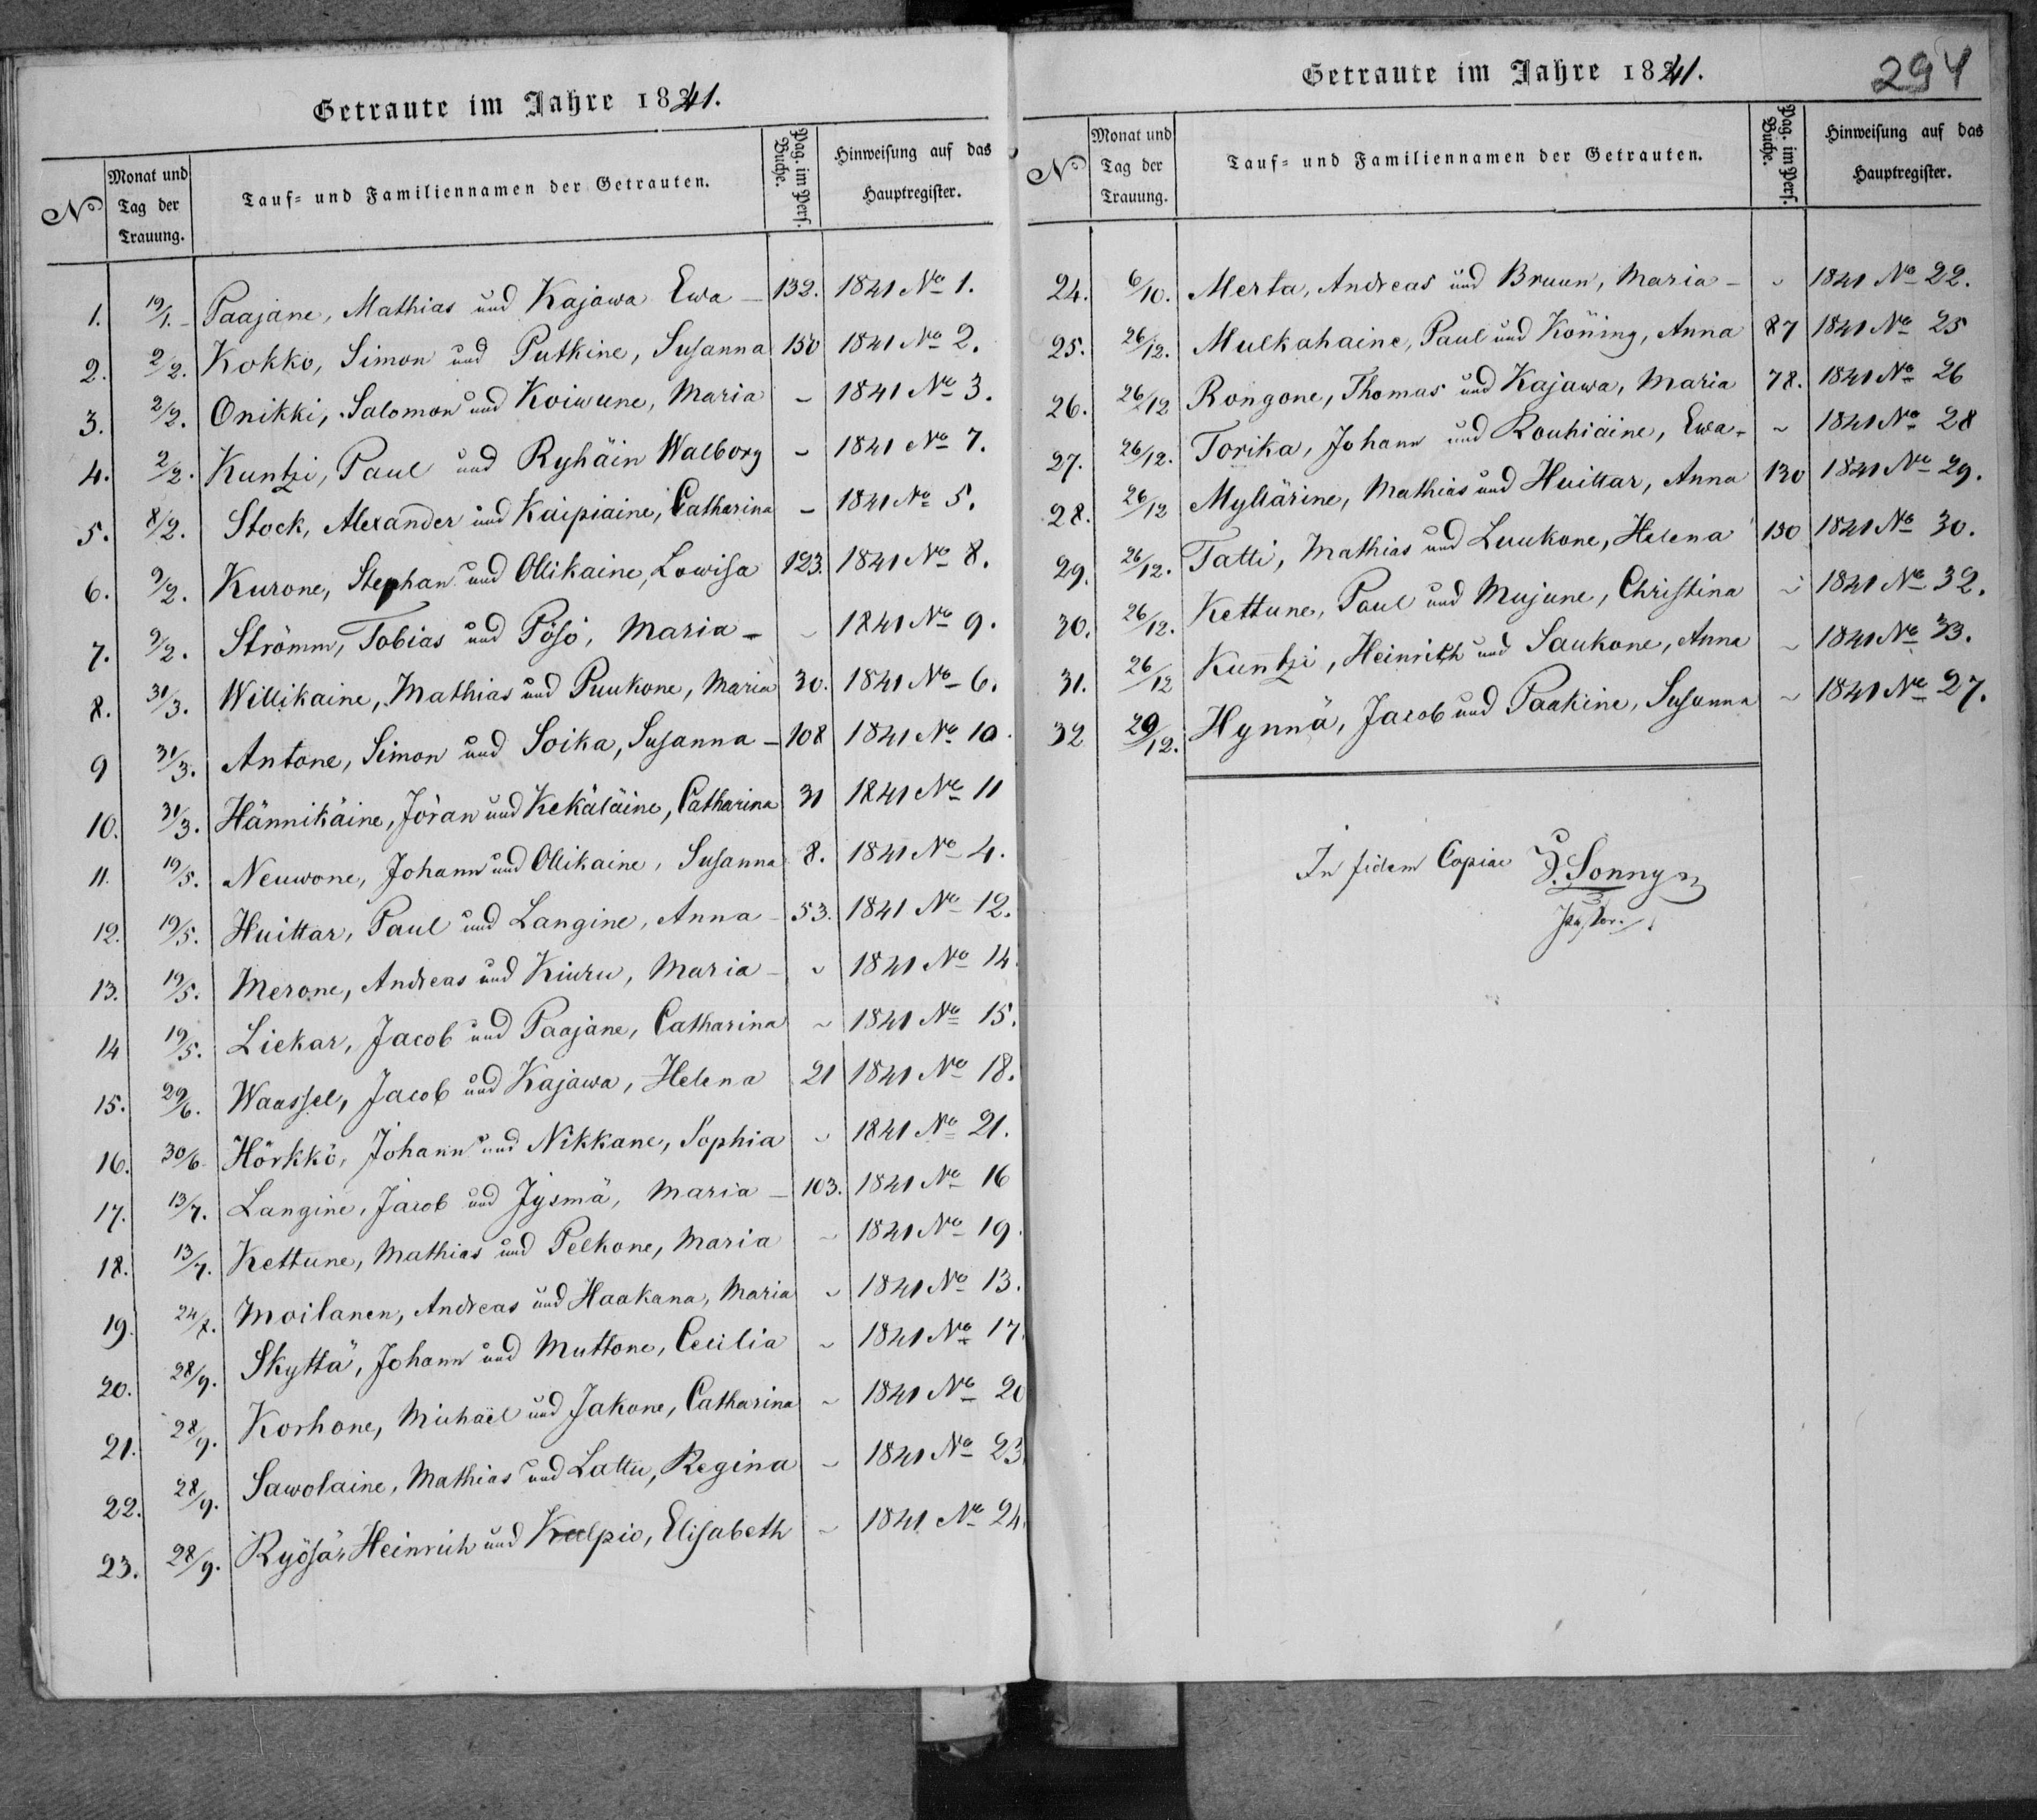 Getraute im Jahre 1841.
No
Monat und Tag der Trauung.
Tauf- und Familiennamen der Getrauten.
Pag. im Pers. Buche.
Hinweisung auf das Hauptregister.
1. 19/1. Paajane, Mathias und Kajawa Ewa — 132. 1841 No 1.
2. 2/2. Kokko, Simon und Putkine, Susanna 150 1841 No 2.
3. 2/2. Onikki, Salomon und Koiwune, Maria - 1841 No 3.
4. 2/2. Kuntzi, Paul und Ryhäin Walborg - 1841 No 7.
5. 8/2. Stock, Alexander und Kaipiaine, Catharina - 1841 No 5.
6. 9/2. Kurone, Stephan und Ollikaine, Lowisa 123. 1841 No 8.
7. 9/2. Strömm, Tobias und Pösö, Maria - - 1841 No 9.
8. 31/3. Willikaine, Mathias und Puukone, Maria 30. 1841 No 6.
9 31/3. Antone, Simon und Soika, Susanna - 108 1841 No 10.
10. 31/3. Hännikäine, Jöran und Kekäläine, Catharina 31 1841 No 11
11. 19/5. Neuwone, Johann und Ollikaine, Susanna 8. 1841 No 4.
12. 19/5. Huittar, Paul und Langine, Anna - 53. 1841 No 12.
13. 19/5. Merone, Andreas und Kiuru, Maria - - 1841 No 14.
14 19/5. Liekar, Jacob und Paajane, Catharina - 1841 No 15.
15. 29/6. Waassel, Jacob und Kajawa, Helena 21 1841 No 18.
16. 30/6. Hörkkö, Johann und Nikkane, Sophia - 1841 No 21.
17. 13/7. Langine, Jacob und Jysmä, Maria - 103. 1841 No 16
18. 13/7. Kettune, Mathias und Pelkone, Maria - 1841 No 19.
19. 24/7. Moilanen, Andreas und Haakana, Maria - 1841 No 13.
20. 28/9. Skyttä, Johann und Muttone, Cecilia - 1841 No 17.
21. 28/9. Korhone, Michaël und Jakone, Catharina - 1841 No 20
22. 28/9. Sawolaine, Mathias und Lattu, Regina - 1841 No 23.
23. 28/9. Ryösä, Heinrich und Kalpio, Elisabeth - 1841 No 24.
294
Getraute im Jahre 1841.
No
Monat und Tag der Trauung.
Tauf- und Familiennamen der Getrauten.
Pag. im Pers. Buche.
Hinweisung auf das Hauptregister.
24. 6/10. Merta, Andreas und Bruun, Maria - - 1841 No 22.
25. 26/12. Mulkahaine, Paul und Köning, Anna 87 1841 No 25
26. 26/12 Rongone, Thomas und Kajawa, Maria 78. 1841 No 26
27. 26/12. Torika, Johann und Rouhiäine, Ewa - - 1841 No 28
28. 26/12 Myllärine, Mathias und Huittar, Anna 130 1841 No 29.
29. 26/12. Tatti, Mathias und Luukone, Helena 150 1841 No 30.
30. 26/12. Kettune, Paul und Mujune, Christina - 1841 No 32.
31. 26/12 Kuntzi, Heinrich und Saukone, Anna - 1841 No 33.
32 29/12. Hynnä, Jacob und Paakine, Susanna - 1841 No 27.
In fidem Copiae
Sonny
Pastor.